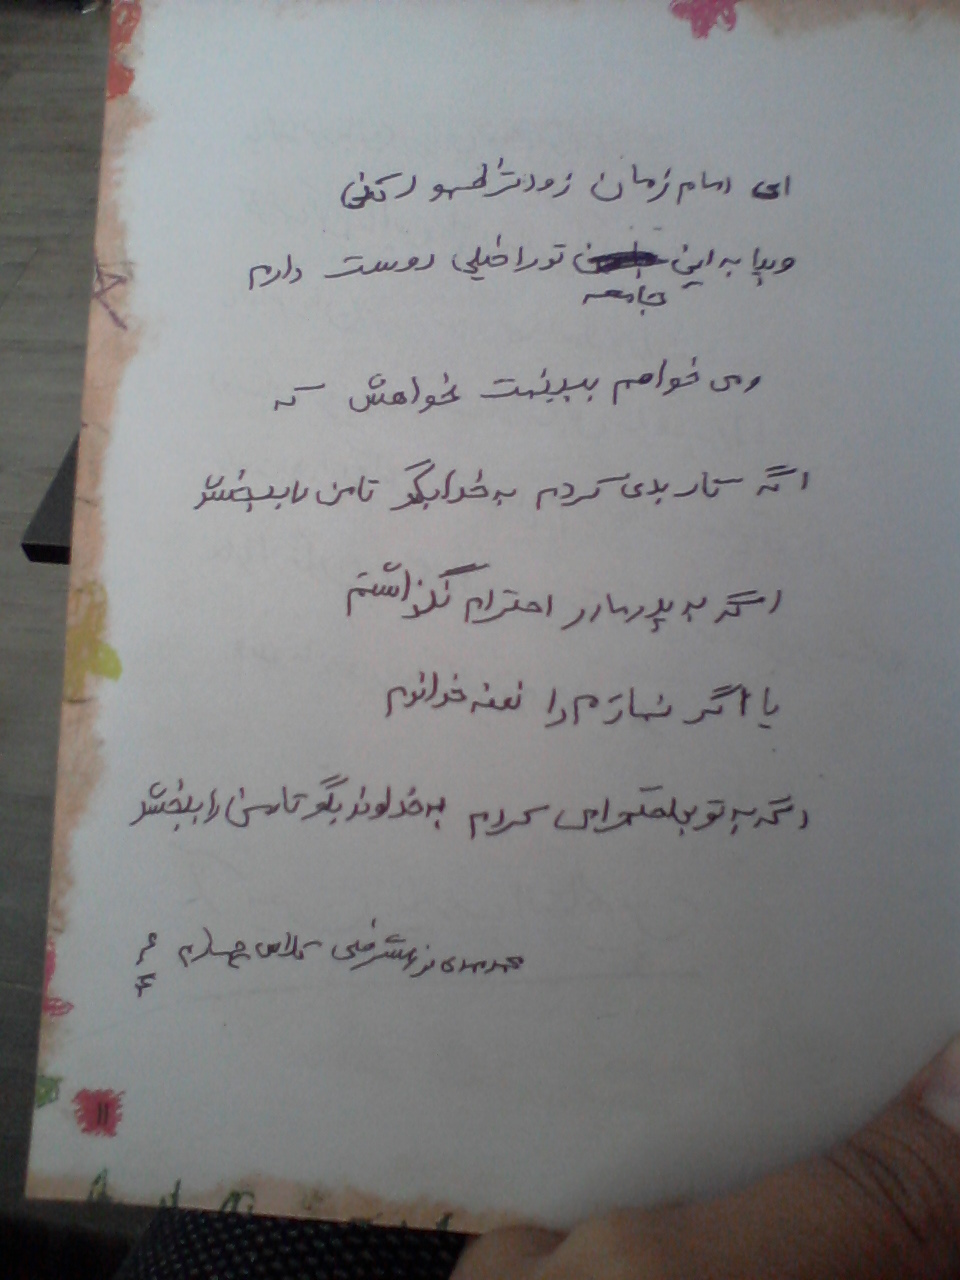 ای امام زمان زودتر ظهور کنی
وبیا به این جامعه تورا خیلی دوست دارم
ومی خواهم ببینمت خواهش که
اگه کار بدی کردم به خدا بگو تا من را ببخشد
اگه به پدر مادر احترام نگذاشتم
یا اگر نمازم را نخوانم
اگه به تو بی احترامی کردم به خداوند بگو تا من را ببخشد
محمد مهدی کلاس چهارم
۱۱